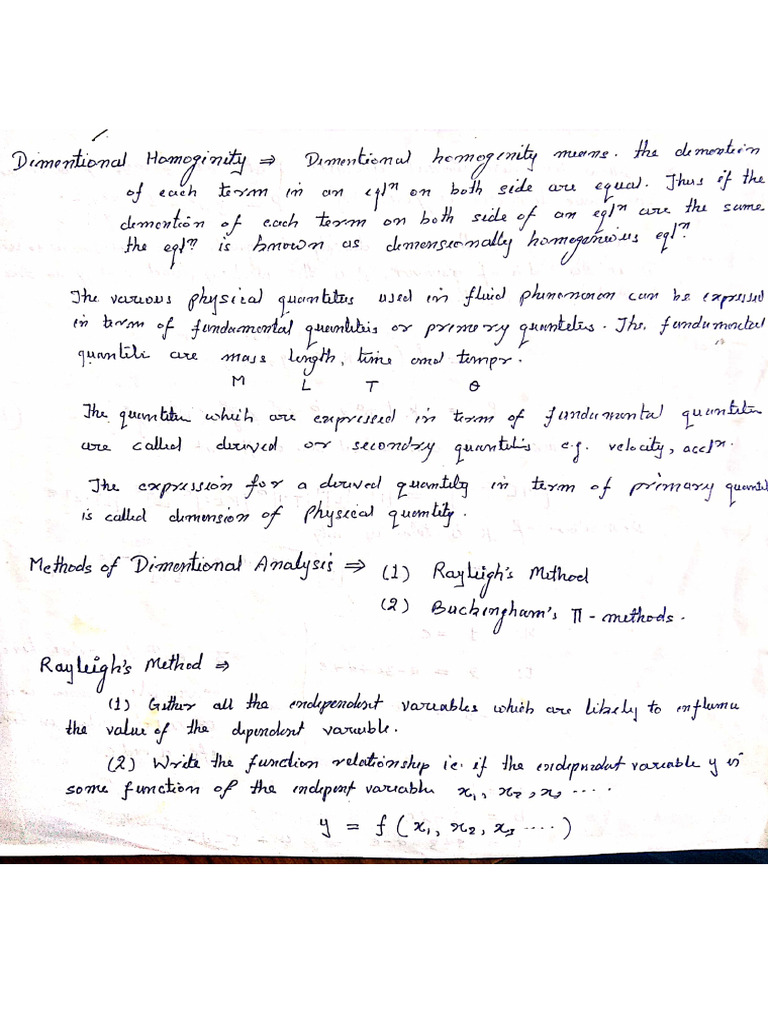 Dimentional Homoginity ⇒ Dimentional homogenity means. the demention
of each term in an eqlⁿ on both side are equal. Thus if the
demention of each term on both side of an eqlⁿ are the same
the eqlⁿ is known as dimensionally homogenious eqlⁿ.
The various physical quantites used in fluid phenomenon can be expressed
in term of fundamental quentities or primory quanteties. The. fundamental
quantili are mass length, time and tempr.
M L T θ
The quantites which are expressed in term of fundamental quantites
are called derived or secondry quantilis e.g. velocity, accⁿ.
The expression for a derived quantity in term of primary quanti
is called dimension of Physical quantity.
Methods of Dimentional Analysis ⇒ (1) Rayleigh's Method
(2) Buckingham's π - methods.
Rayleigh's Method ⇒
(1) Gather all the endependent variables which are likely to influence
the value of the dependent variable.
(2) Write the function relationship ie. if the endependent variable y is
some function of the indepent variable x₁, x₂, x₃ ....
y = f (x₁, x₂, x₃ ....)